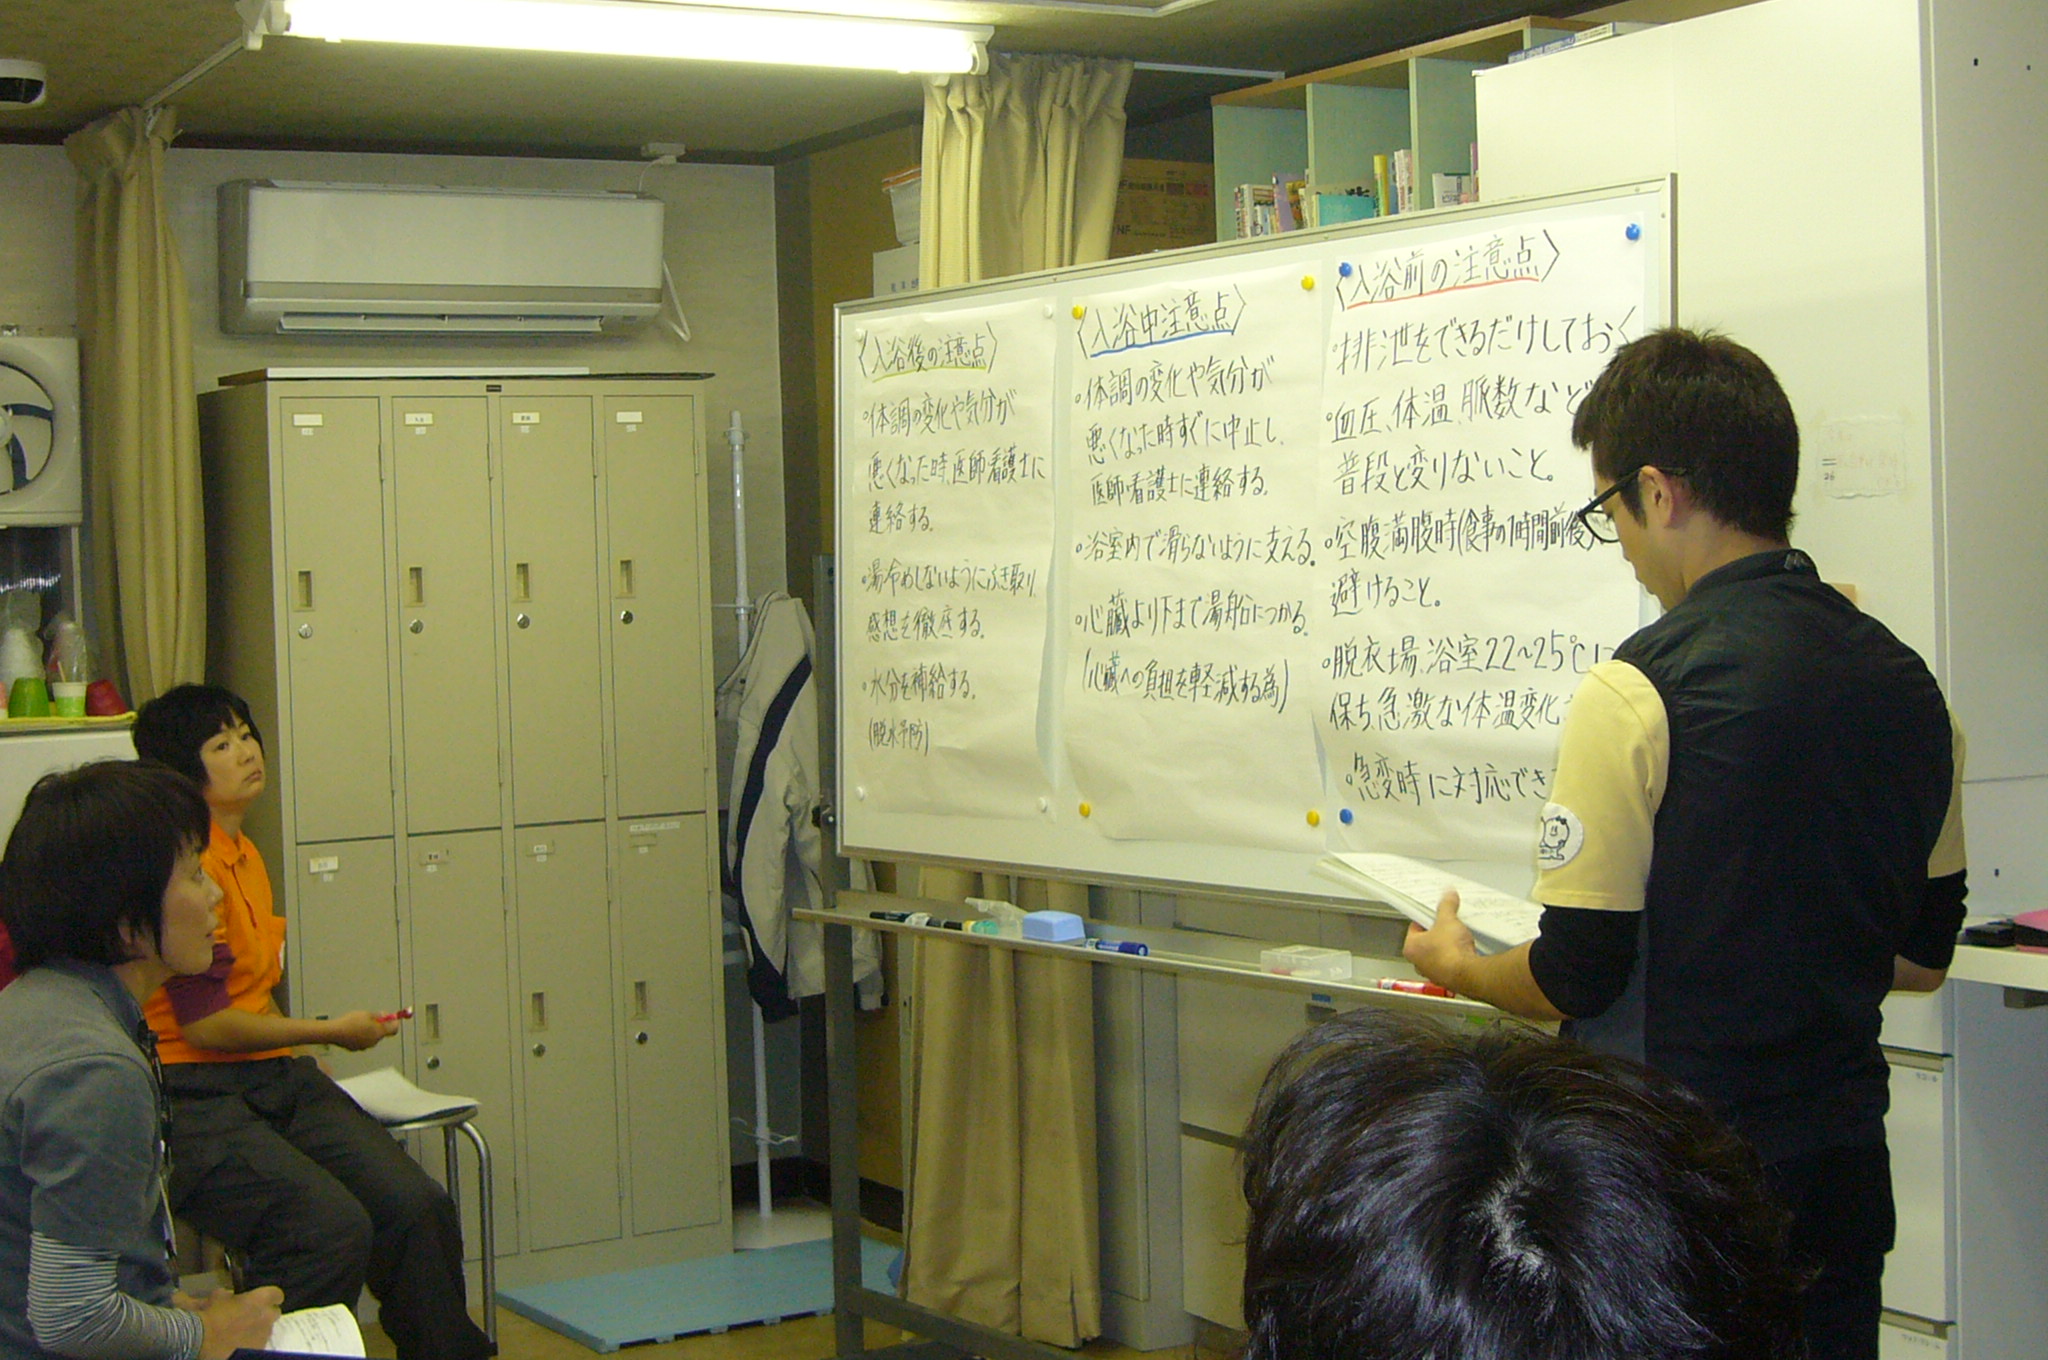 〈入浴前の注意点〉
◦排泄をできるだけしておく
◦血圧、体温、脈数など
普段と変りないこと。
◦空腹満腹時(食事の1時間前後)
避けること。
◦脱衣場、浴室22~25℃に
保ち、急激な体温変化
◦急変時に対応でき
〈入浴中注意点〉
◦体調の変化や気分が
悪くなった時すぐに中止し、
医師・看護士に連絡する。
◦浴室内で滑らないように支える。
◦心臓より下まで湯船につかる。
(心臓への負担を軽減する為)
〈入浴後の注意点〉
◦体調の変化や気分が
悪くなった時、医師看護士に
連絡する。
◦湯冷めしないようにふき取り、
感想を徹底する。
◦水分を補給する。
(脱水予防)